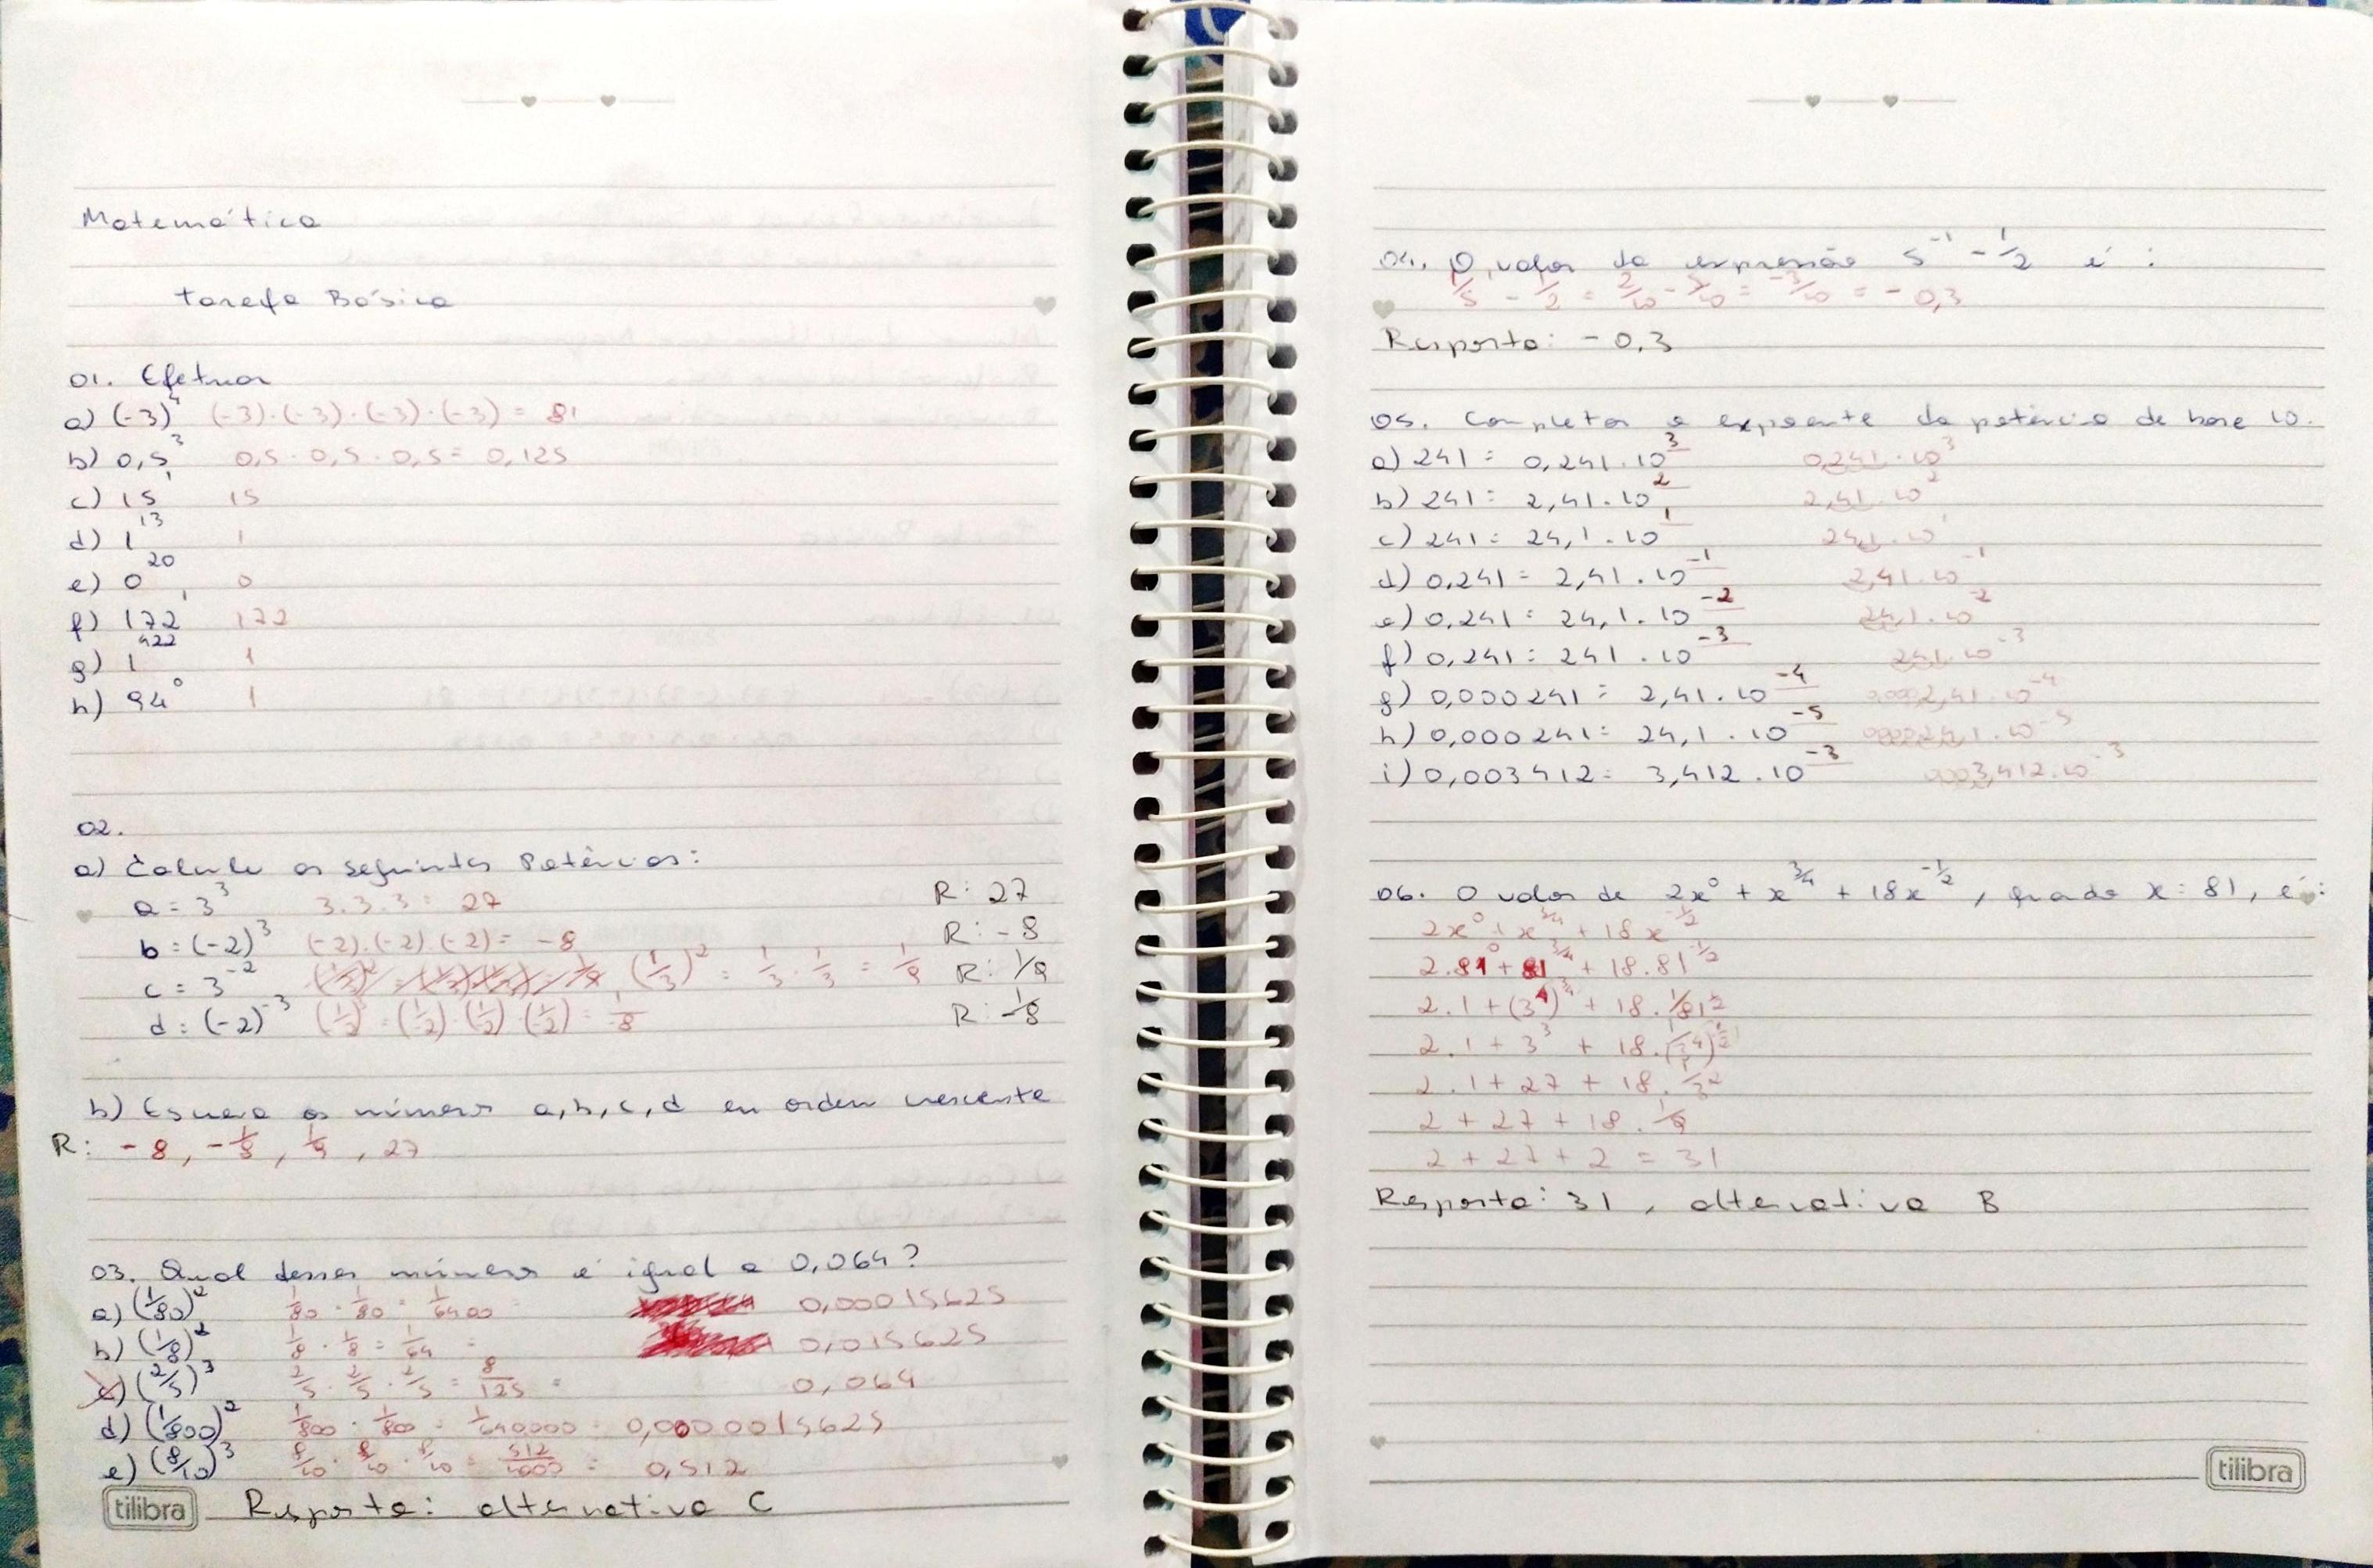 Matemática
Tarefa Básica
01. Efetuar
a) (-3)⁴ (-3).(-3).(-3).(-3) = 81
b) 0,5³ 0,5 . 0,5 . 0,5 = 0,125
c) 15¹ 15
d) 1¹³ 1
e) 0²⁰ 0
f) 172¹ 172
g) 1⁴²² 1
h) 94⁰ 1
02.
a) Calcule as seguintes Potências:
a = 3³ 3.3.3 = 27 R: 27
b = (-2)³ (-2).(-2).(-2) = -8 R: -8
c = 3⁻² (1/3)² = 1/3 . 1/3 = 1/9 R: 1/9
d = (-2)⁻³ R: -1/8
b) Escreva os números a, b, c, d em ordem crescente
R: -8, -1/8, 1/9, 27
03. Qual desses números é igual a 0,064?
a) (1/80)² 1/80 . 1/80 = 1/6400 = 0,00015625
b) (1/8)² 1/8 . 1/8 = 1/64 = 0,015625
c) (2/5)³ 2/5 . 2/5 . 2/5 = 8/125 = 0,064
d) (1/800)² 1/800 . 1/800 = 1/640000 = 0,0000015625
e) (8/10)³ 8/10 . 8/10 . 8/10 = 512/1000 = 0,512
Resposta: alternativa C
tilibra
04. O valor da expressão 5⁻¹ - 1/2 é:
1/5 - 1/2 = 2/10 - 5/10 = -3/10 = -0,3
Resposta: -0,3
05. Completar o expoente da potência de base 10.
a) 241 = 0,241.10³ 0,241.10³
b) 241 = 2,41.10² 2,41.10²
c) 241 = 24,1.10¹ 24,1.10¹
d) 0,241 = 2,41.10⁻¹ 2,41.10⁻¹
e) 0,241 = 24,1.10⁻² 24,1.10⁻²
f) 0,241 = 241.10⁻³ 241.10⁻³
g) 0,000241 = 2,41.10⁻⁴ 0,0002,41.10⁻⁴
h) 0,000241 = 24,1.10⁻⁵
i) 0,003412 = 3,412.10⁻³ 0003,412.10⁻³
06. O valor de 2x⁰ + x^3/4 + 18x^-1/2, quando x = 81, é:
2x⁰ + x^3/4 + 18x^-1/2
2.81⁰ + 81^3/4 + 18.81^-1/2
2.1 + (3⁴)^3/4 + 18.1/81^1/2
2.1 + 3³ + 18.(1/3⁴)^1/2
2.1 + 27 + 18.1/3²
2 + 27 + 18.1/9
2 + 27 + 2 = 31
Resposta: 31, alternativa B
tilibra